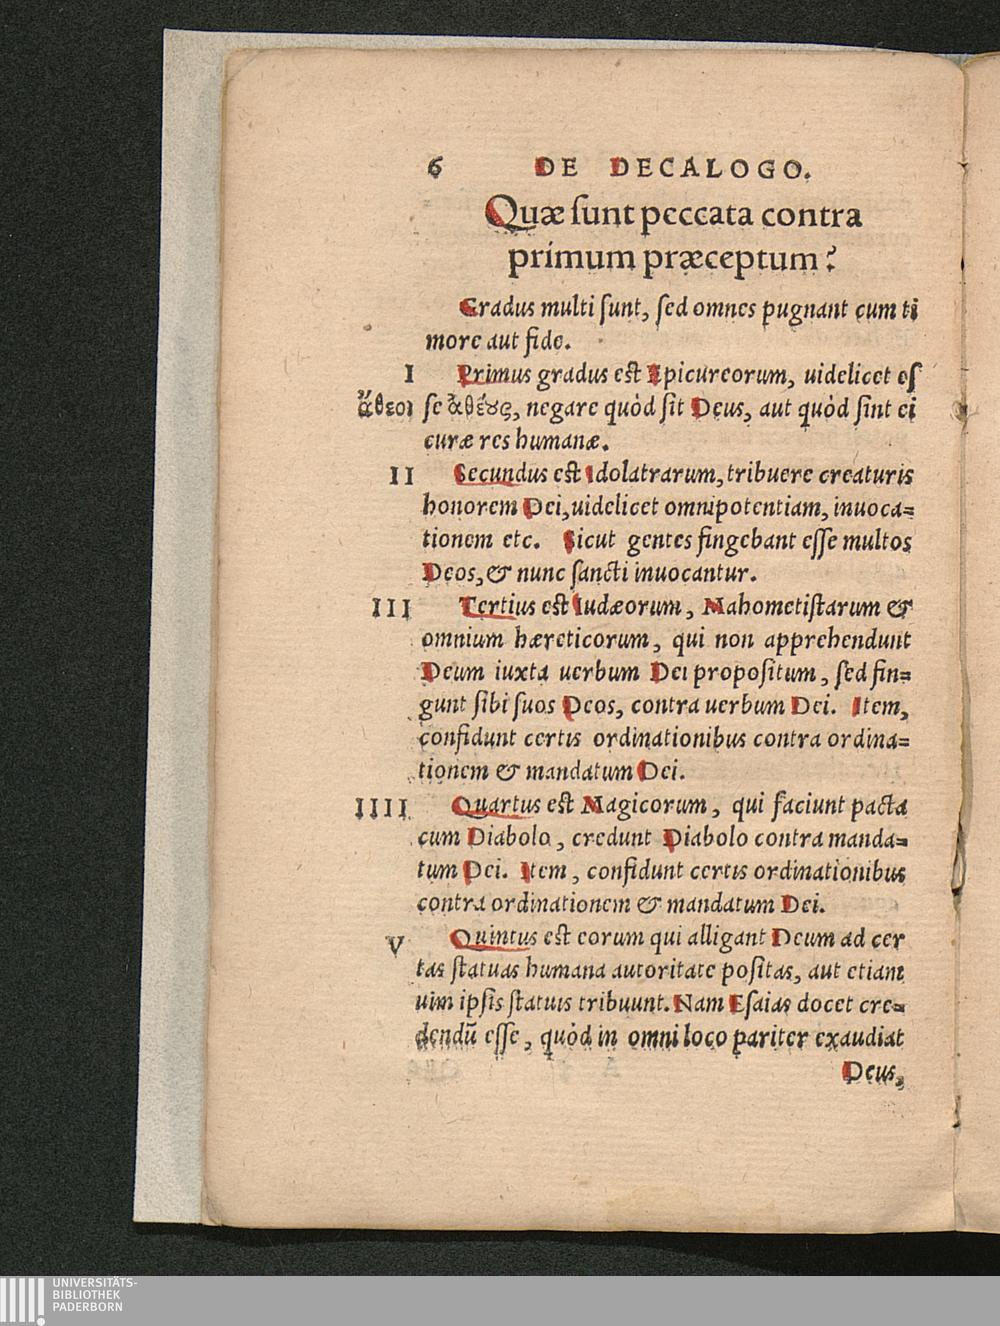 6 DE DECALOGO.
Quæ ſunt peccata contra
primum præceptum?
Gradus multi ſunt, ſed omnes pugnant cum ti
more aut fide.
I Primus gradus eſt Epicureorum, uidelicet eſ
ἄθεοι ſe ἀθέους, negare quòd ſit Deus, aut quòd ſint ei
curæ res humanæ.
II Secundus eſt Idolatrarum, tribuere creaturis
honorem Dei, uidelicet omnipotentiam, inuoca=
tionem etc. Sicut gentes fingebant eſſe multos
Deos, & nunc ſancti inuocantur.
III Tertius eſt Iudæorum, Mahometiſtarum &
omnium hæreticorum, qui non apprehendunt
Deum iuxta uerbum Dei propoſitum, ſed fin=
gunt ſibi ſuos Deos, contra uerbum Dei. Item,
confidunt certis ordinationibus contra ordina=
tionem & mandatum Dei.
IIII Quartus eſt Magicorum, qui faciunt pacta
cum Diabolo, credunt Diabolo contra manda=
tum Dei. Item, confidunt certis ordinationibus
contra ordinationem & mandatum Dei.
V Quintus eſt eorum qui alligant Deum ad cer
tas ſtatuas humana autoritate poſitas, aut etiam
uim ipſis ſtatuis tribuunt. Nam Eſaias docet cre=
dendū eſſe, quòd in omni loco pariter exaudiat
Deus,
UNIVERSITÄTS-
BIBLIOTHEK
PADERBORN